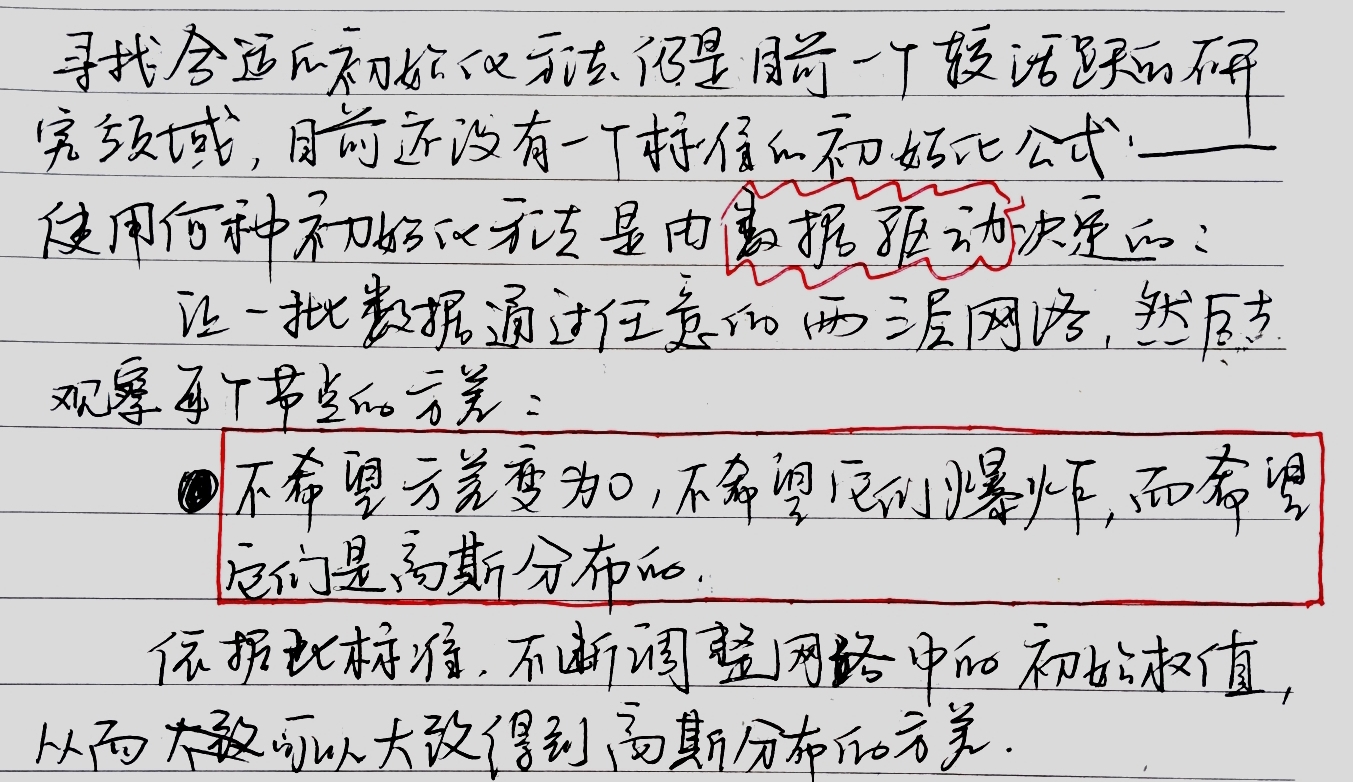 寻找合适的初始化方法仍是目前一个较活跃的研
究领域,目前还没有一个标准的初始化公式.——
使用何种初始化方法是由数据驱动决定的:
让一批数据通过任意的两三层网络,然后去
观察每个节点的方差:
● 不希望方差变为0,不希望它们爆炸,而希望
它们是高斯分布的.
依据此标准.不断调整网络中的初始权值,
从而大致可以大致得到高斯分布的方差.